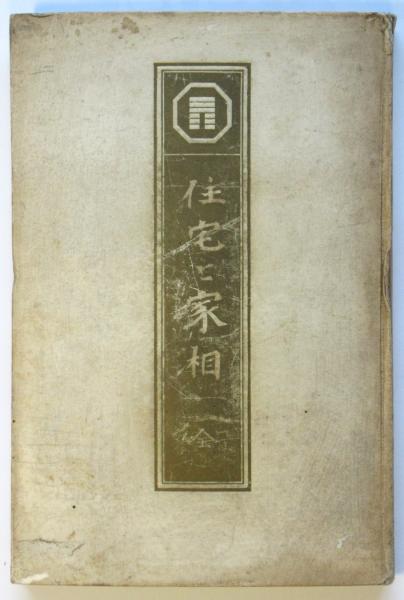 住宅と家相